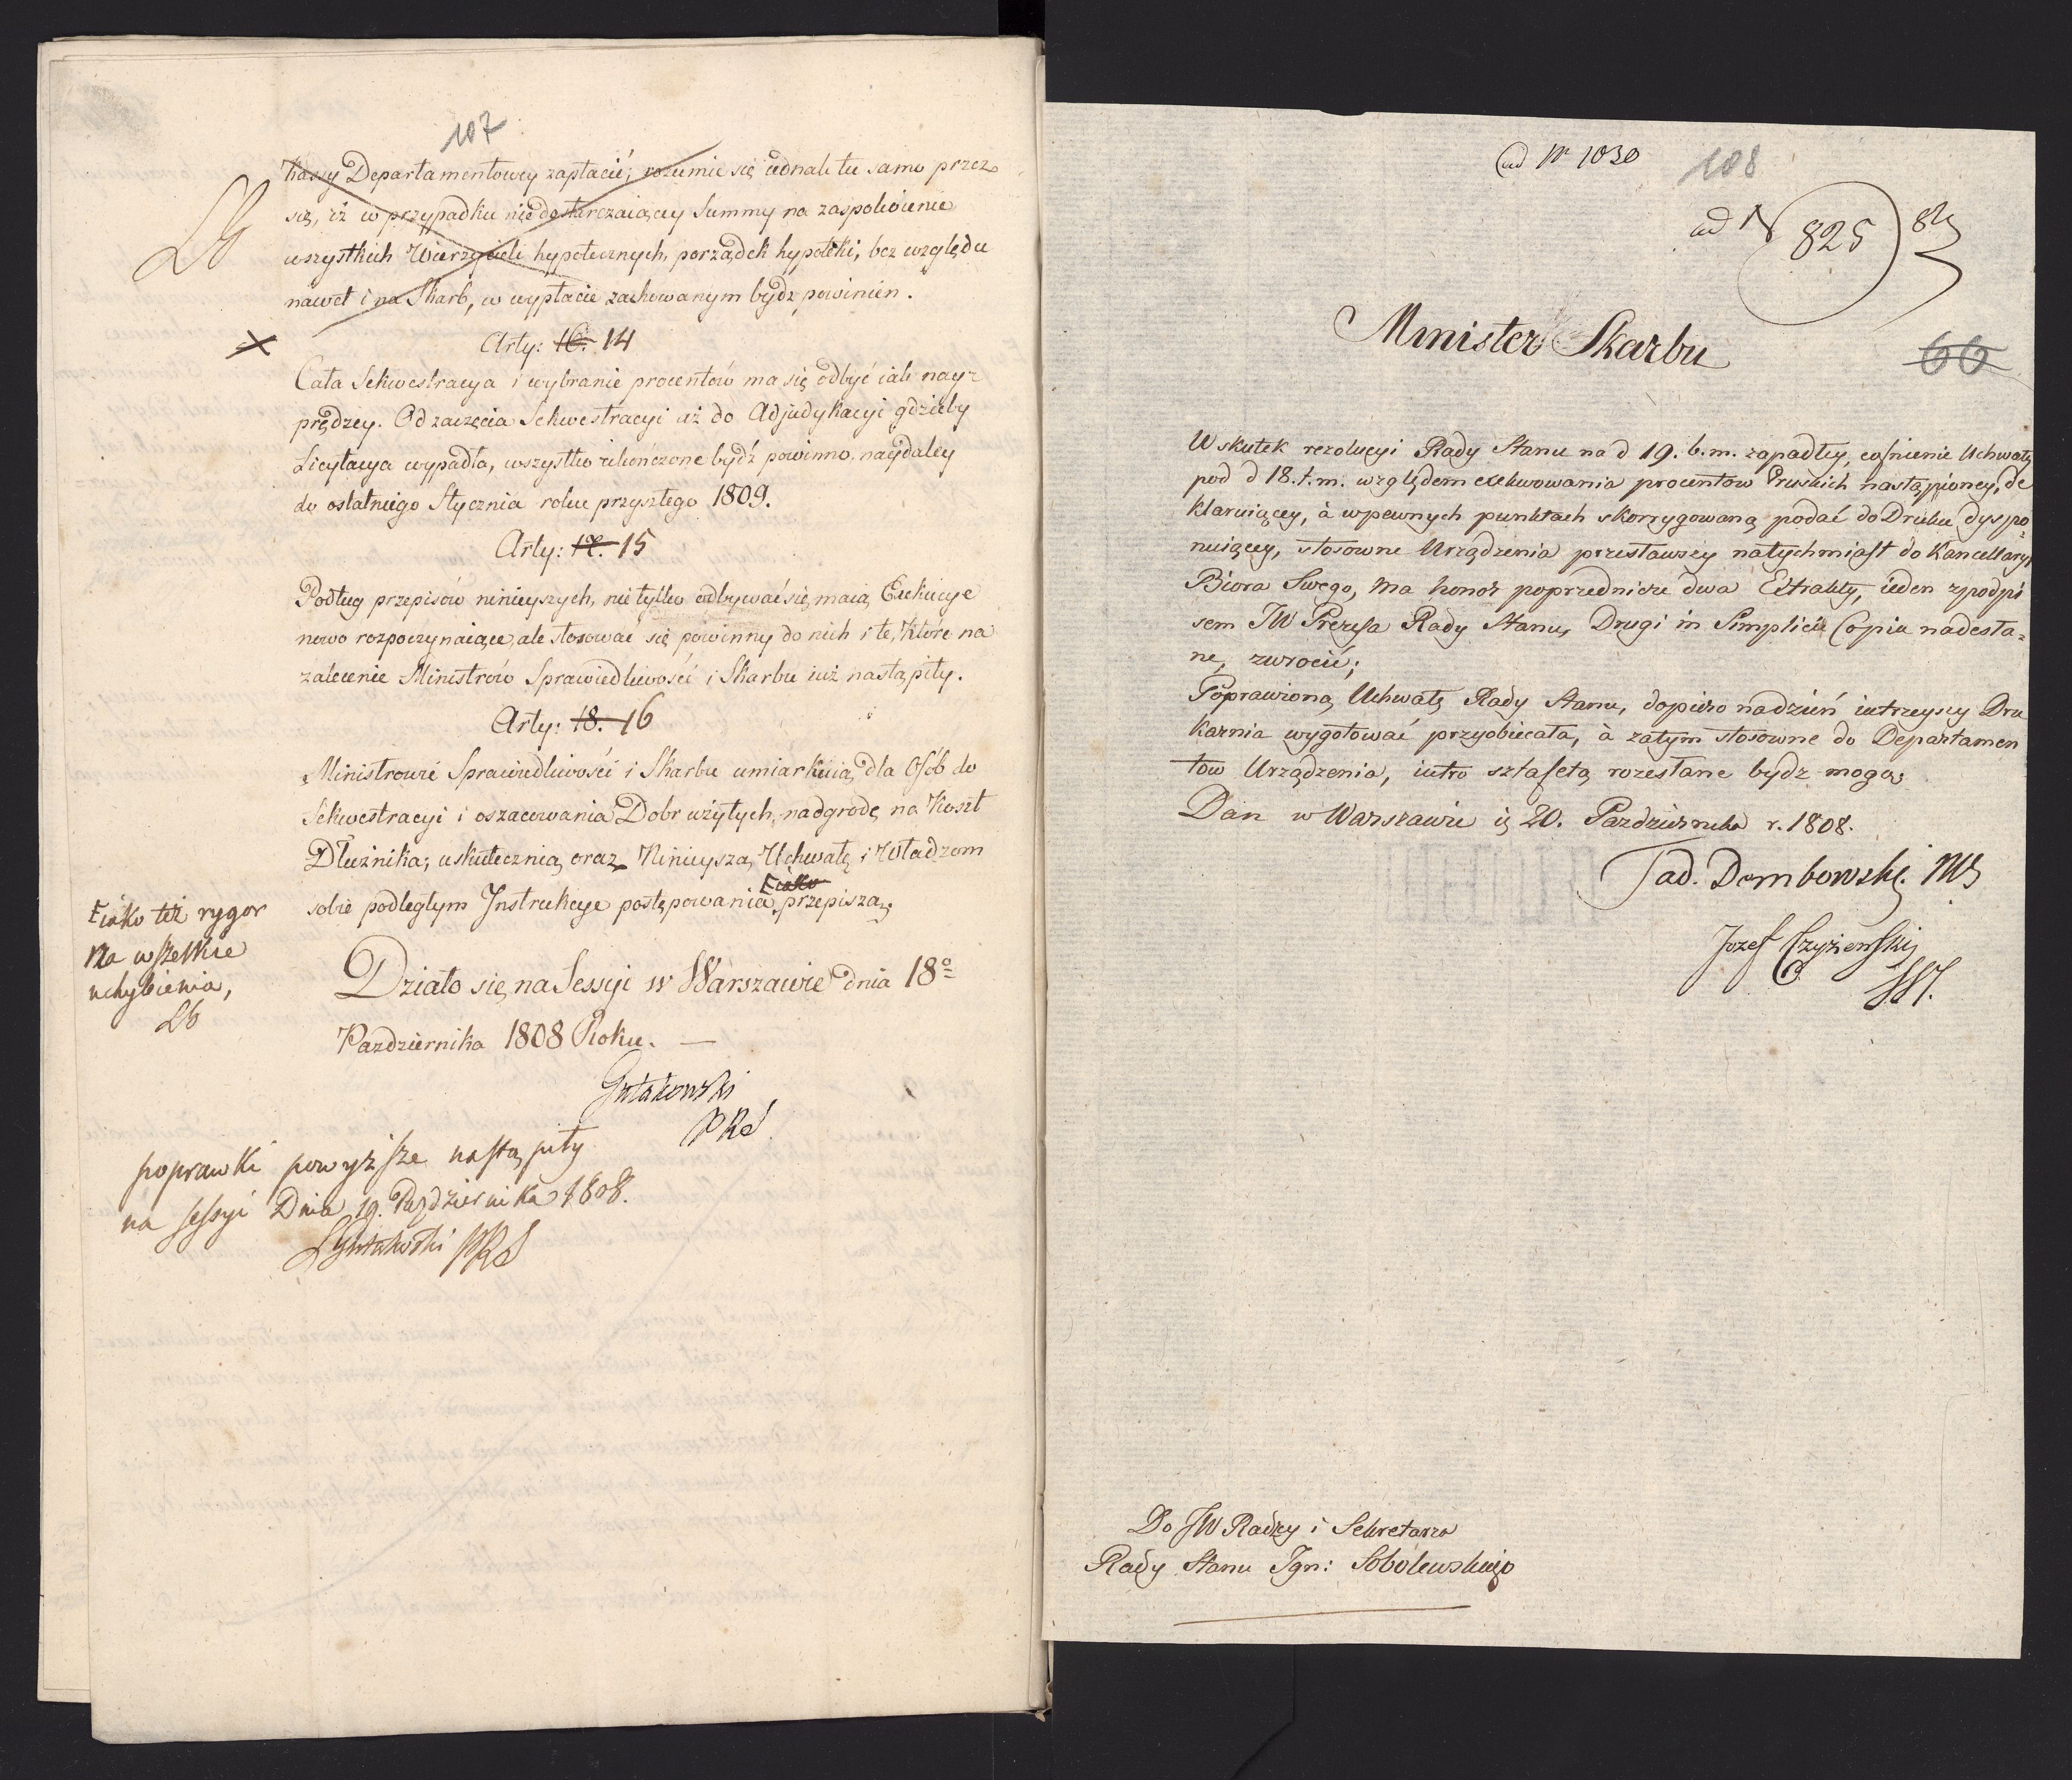 107
Kassy Departamentowey zapłacić; rozumie się iednak tu samo przez
się, iż w przypadku niedostarczaiącey Summy na zaspokoienie
wszystkich Wierzycieli hypotecznych, porządek hypoteki, bez względu
nawet i na Skarb, w wypłacie zachowanym bydź powinien.
Arty: 16. 14
Cała Sekwestracya i wybranie procentów ma się odbyć iak nay-
prędzey. Od zaczęcia Sekwestracyi aż do Adjudykacyi gdzieby
Licytacya wypadła, wszystko ukończone bydź powinno naydaley
do ostatniego Stycznia roku przyszłego 1809.
Arty: 17. 15
Podług przepisów ninieyszych, nie tylko odbywać się maią Exekucye
nowo rozpoczynaiące, ale stosować się powinny do nich i te, które na
zalecenie Ministrów Sprawiedliwości i Skarbu iuż nastąpiły.
Arty: 18. 16
Ministrowie Sprawiedliwości i Skarbu umiarkuią dla Osób do
Sekwestracyi i oszacowania Dobr użytych, nadgrodę na Koszt
Dłużnika; uskutecznią oraz Ninieyszą Uchwałę i Władzom
iako
sobie podległym Instrukcye postępowania przepiszą.
iako też rygor
na wszelkie
uchybienia,
Lb
Działo się na Sessyi w Warszawie dnia 18º
Pazdziernika 1808 Roku. —
Gutakowski
PRS
poprawki powyższe nastąpiły
na sessyi Dnia 19. Pazdziernika 1808.
LGutakowski PRS
ad Nr 1030
108
ad N 825
82
66
Minister Skarbu
W skutek rezolucyi Rady Stanu na d 19. b.m. zapadłey, cofnienie Uchwały
pod d 18. t.m. względem exekwowania procentow Pruskich nastąpioney, de
klaruiącey, à w pewnych punktach skorrygowaną podać do Druku dyspo
nuiącey, stosowne Urządzenia przesławszy natychmiast do Kancellaryi
Biora Swego, ma honor poprzednicze dwa Extrakty, ieden z podpi
sem JW Prezesa Rady Stanu, Drugi in Simplici Copia nadesła=
ne, zwrocić;
Poprawioną Uchwałę Rady Stanu, dopiero na dzień iutrzeyszy Dru
karnia wygotować przyobiecała, à zatym stosowne do Departamen
tow Urządzenia, iutro sztafetą rozesłane bydz mogą;
Dan w Warszawie d 20. Pazdziernika r. 1808.
Tad. Dembowski. MS
Jozef Czyżewski
Do JW Radzcy i Sekretarza
Rady Stanu Ign: Sobolewskiego